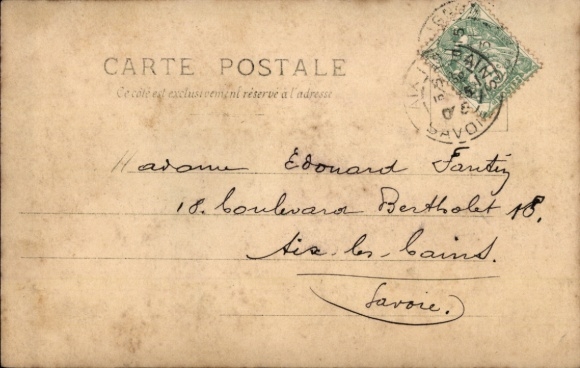 CARTE POSTALE
Ce côté est exclusivement réservé à l'adresse
Madame Edouard Fantin
18. boulevard Bertholet 18.
Aix-les-bains.
Savoie.